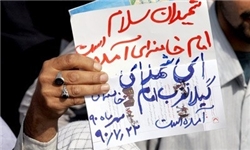 شهیدان سلام
امام خامنه‌ای آمده
است
ای شهدای
گیلانغرب امام خامنه‌ای
آمده است
مهرماه ۹۰
۹۰/۷/۲۳